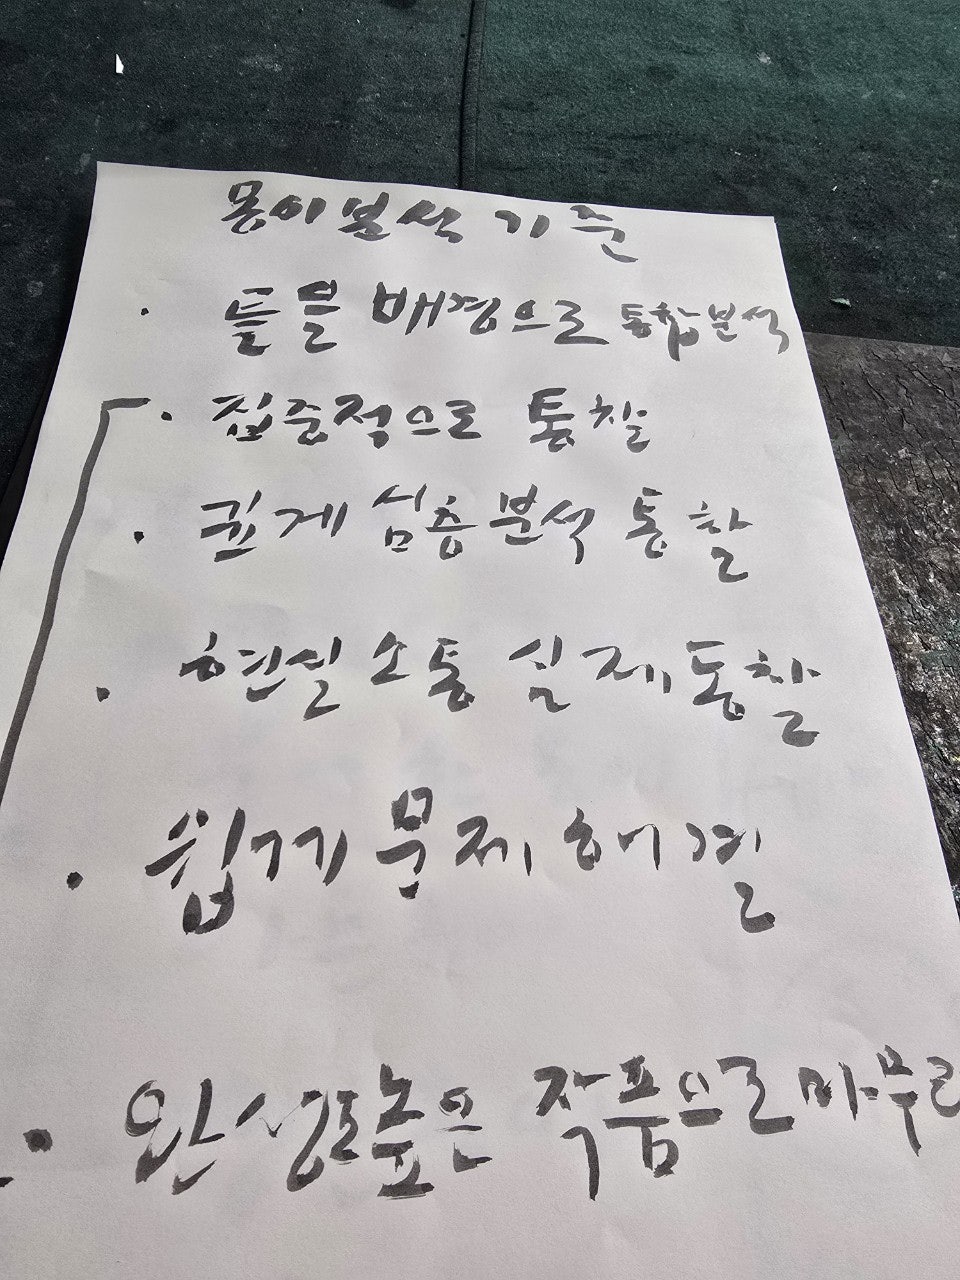 몽이분석 기준
· 틀을 배경으로 통합분석
· 집중적으로 통찰
· 깊게 심층분석 통찰
· 현실소통 실제통찰
· 쉽게 문제 해결
· 완성도높은 작품으로마무리